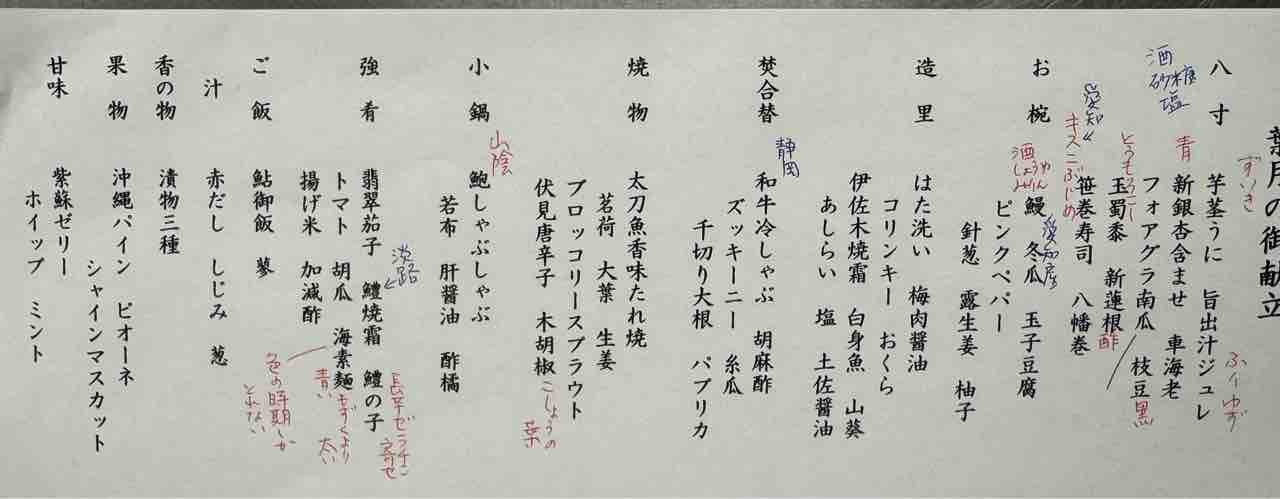 葉月の御献立
ずいき
八寸 芋茎うに 旨出汁ジュレ
ふりゆず
酒
砂糖
塩
青
新銀杏含ませ 車海老
フォアグラ南瓜 枝豆 黒
とうもろこし
玉蜀黍 新蓮根 酢
笹巻寿司 八幡巻
愛知
キスこぶじめ
お椀 鰻 冬瓜 玉子豆腐
愛知産
酒
ピンクペパー
針葱 露生姜 柚子
造里 はた洗い 梅肉醤油
コリンキー おくら
伊佐木焼霜 白身魚 山葵
あしらい 塩 土佐醤油
焚合替 和牛冷しゃぶ 胡麻酢
静岡
ズッキーニ 糸瓜
千切り大根 パプリカ
焼物 太刀魚香味たれ焼
茗荷 大葉 生姜
ブロッコリースプラウト
伏見唐辛子 木胡椒
こしょうの
葉
小鍋 鮑しゃぶしゃぶ
山陰
若布 肝醤油 酢橘
強肴 翡翠茄子 鱧焼霜 鱧の子
淡路
ゼラチン
寄せ
トマト 胡瓜 海素麺
もずくより
太い
青い
揚げ米 加減酢
色の時期しか
とれない
ご飯 鮎御飯 蓼
汁 赤だし しじみ 葱
香の物 漬物三種
果物 沖縄パイン ピオーネ
シャインマスカット
甘味 紫蘇ゼリー
ホイップ ミント